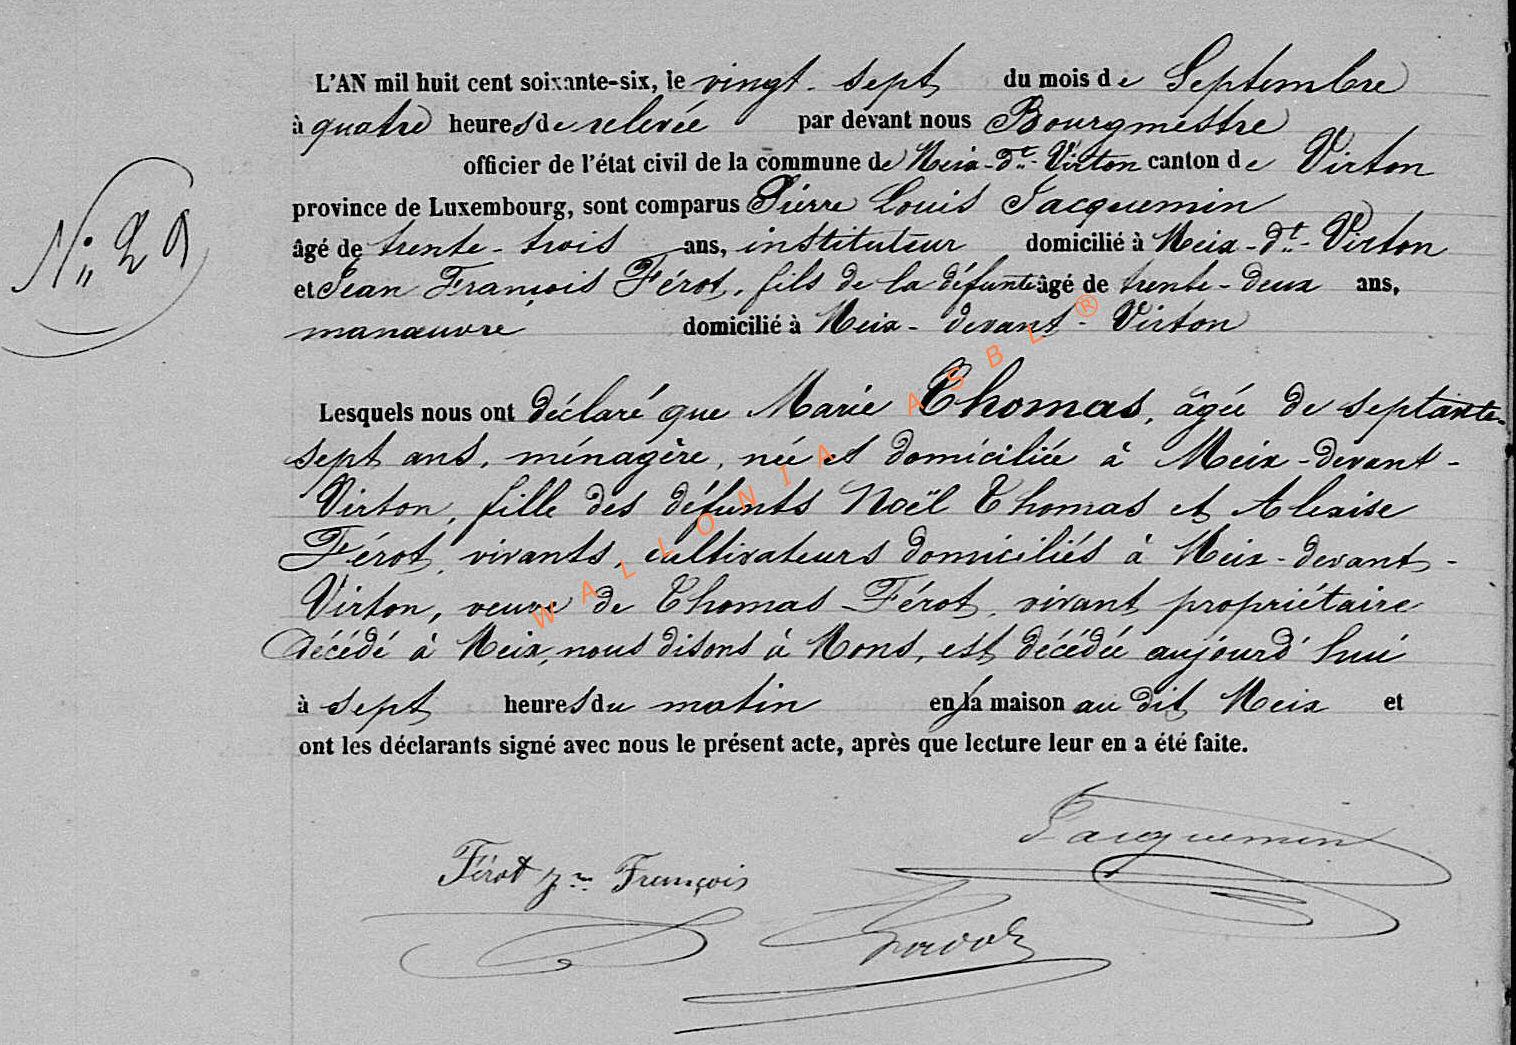 L'AN mil huit cent soixante-six, le vingt-sept du mois de Septembre
à quatre heures de relevée par devant nous Bourgmestre
officier de l'état civil de la commune de Meix-dt-Virton canton de Virton
province de Luxembourg, sont comparus Pierre Louis Jacquemin
âgé de trente-trois ans, instituteur domicilié à Meix-dt-Virton
et Jean François Férot, fils de la défunte âgé de trente-deux ans,
manœuvre domicilié à Meix-devant-Virton
N° 29
Lesquels nous ont déclaré que Marie Thomas, âgée de septante-
sept ans, ménagère, née et domiciliée à Meix-devant-
Virton, fille des défunts Noël Thomas et Alexise
Férot, vivants, cultivateurs domiciliés à Meix-devant-
Virton, veuve de Thomas Férot, vivant propriétaire
décédé à Meix, nous disons à Mons, est décédée aujourd'hui
à sept heures du matin en la maison au dit Meix et
ont les déclarants signé avec nous le présent acte, après que lecture leur en a été faite.
Jacquemin
Férot Jn François
WALLONIA ASBL ®